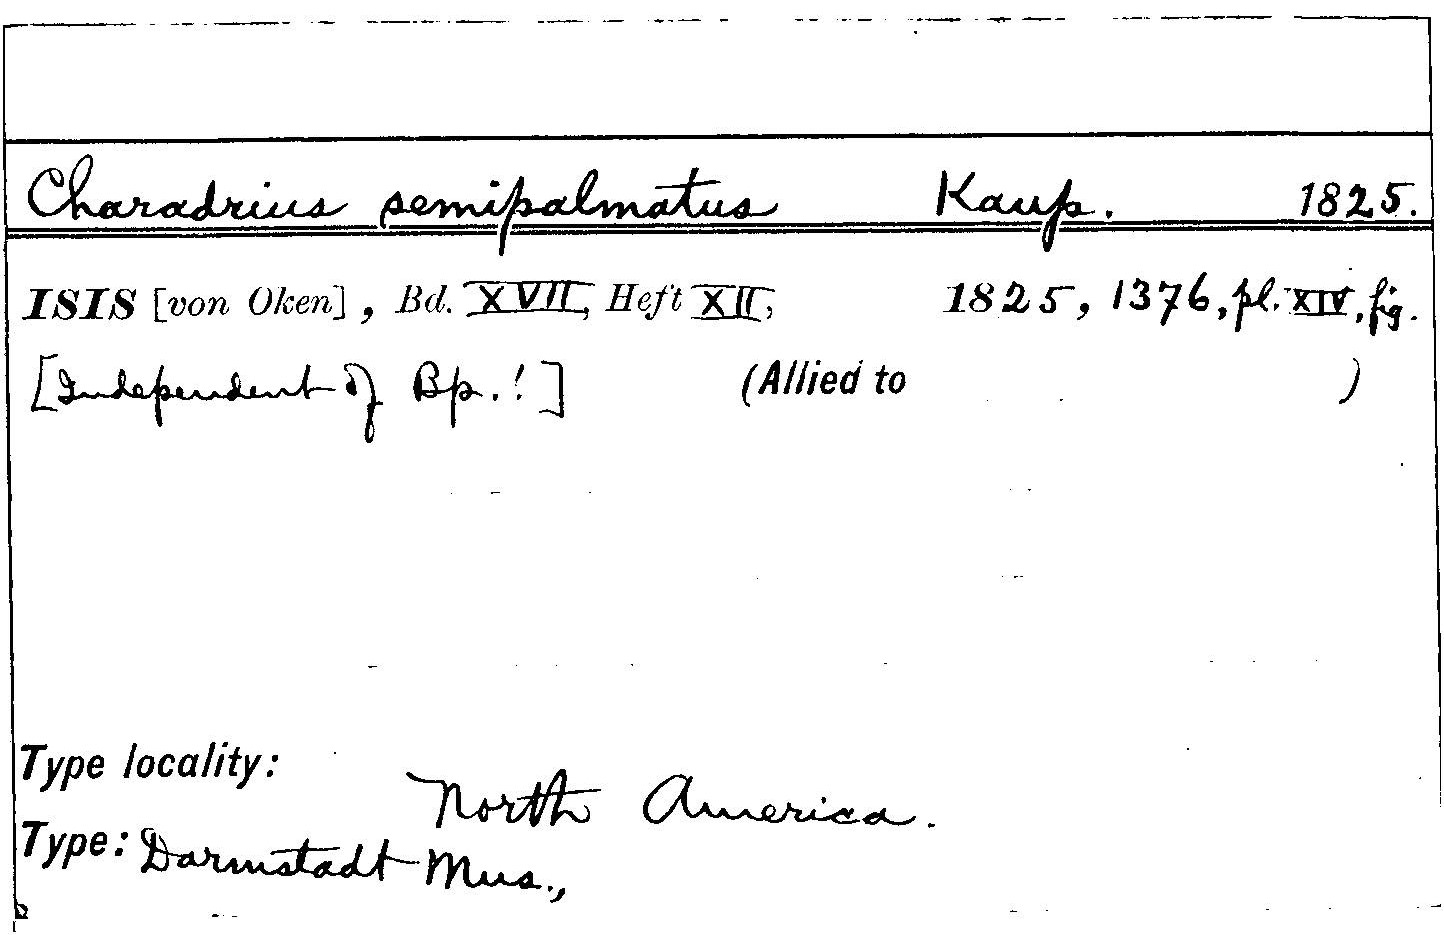 Charadrius semipalmatus Kaup. 1825.
ISIS [von Oken], Bd. XVII, Heft XII, 1825, 1376, pl. XIV, fig.
[Independent of Bp.!] (Allied to )
Type locality: North America.
Type: Darmstadt Mus.,